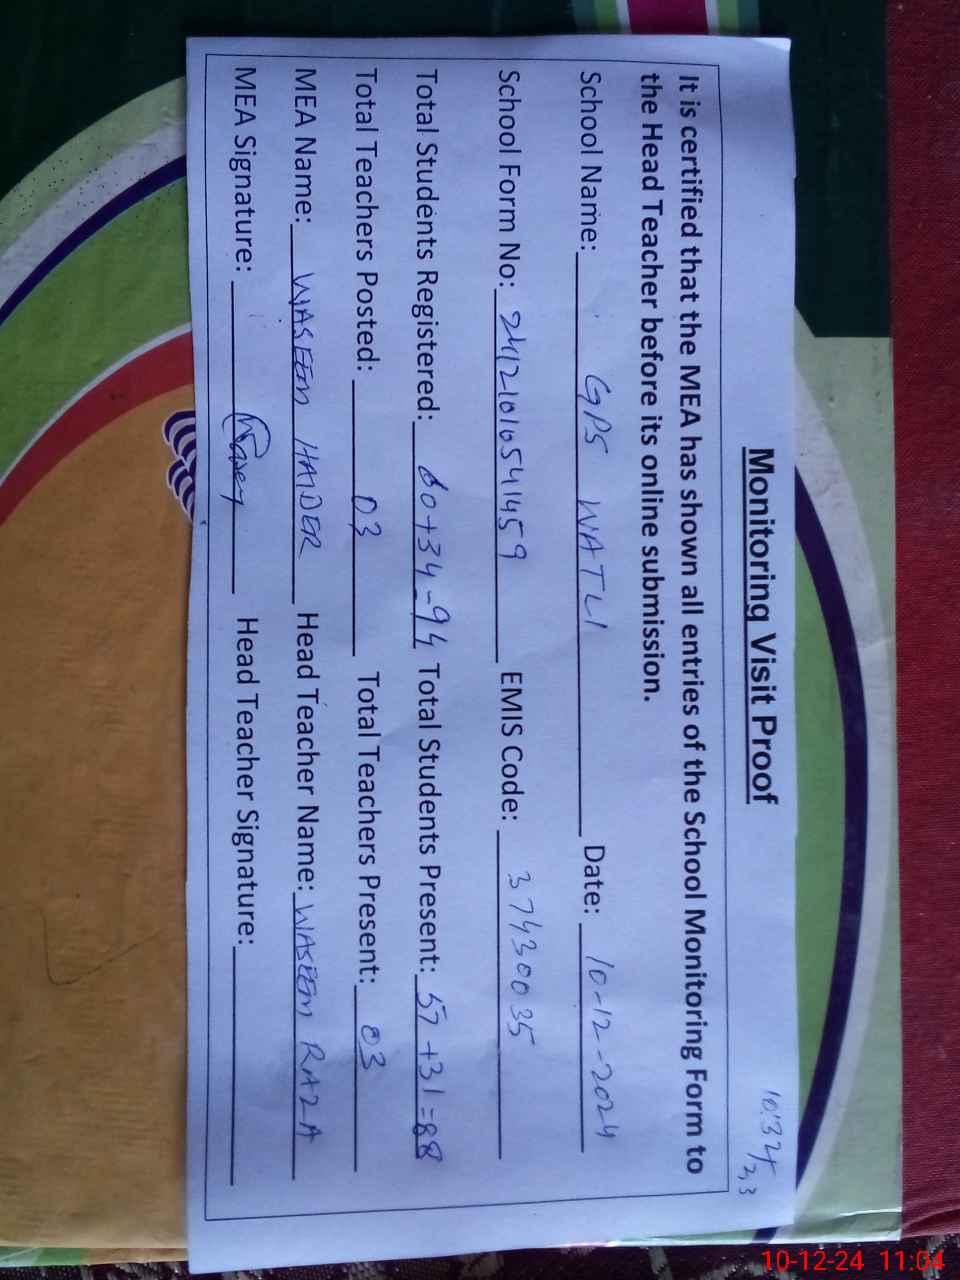 Monitoring Visit Proof
10:34
2,3
It is certified that the MEA has shown all entries of the School Monitoring Form to
the Head Teacher before its online submission.
School Name: GPS WATLI Date: 10-12-2024
School Form No: 24121010541459 EMIS Code: 37430035
Total Students Registered: 60+34-94 Total Students Present: 57+31=88
Total Teachers Posted: 03 Total Teachers Present: 03
MEA Name: WASEEM HAIDER Head Teacher Name: WASEEM RAZA
MEA Signature: Head Teacher Signature:
10-12-24 11:04